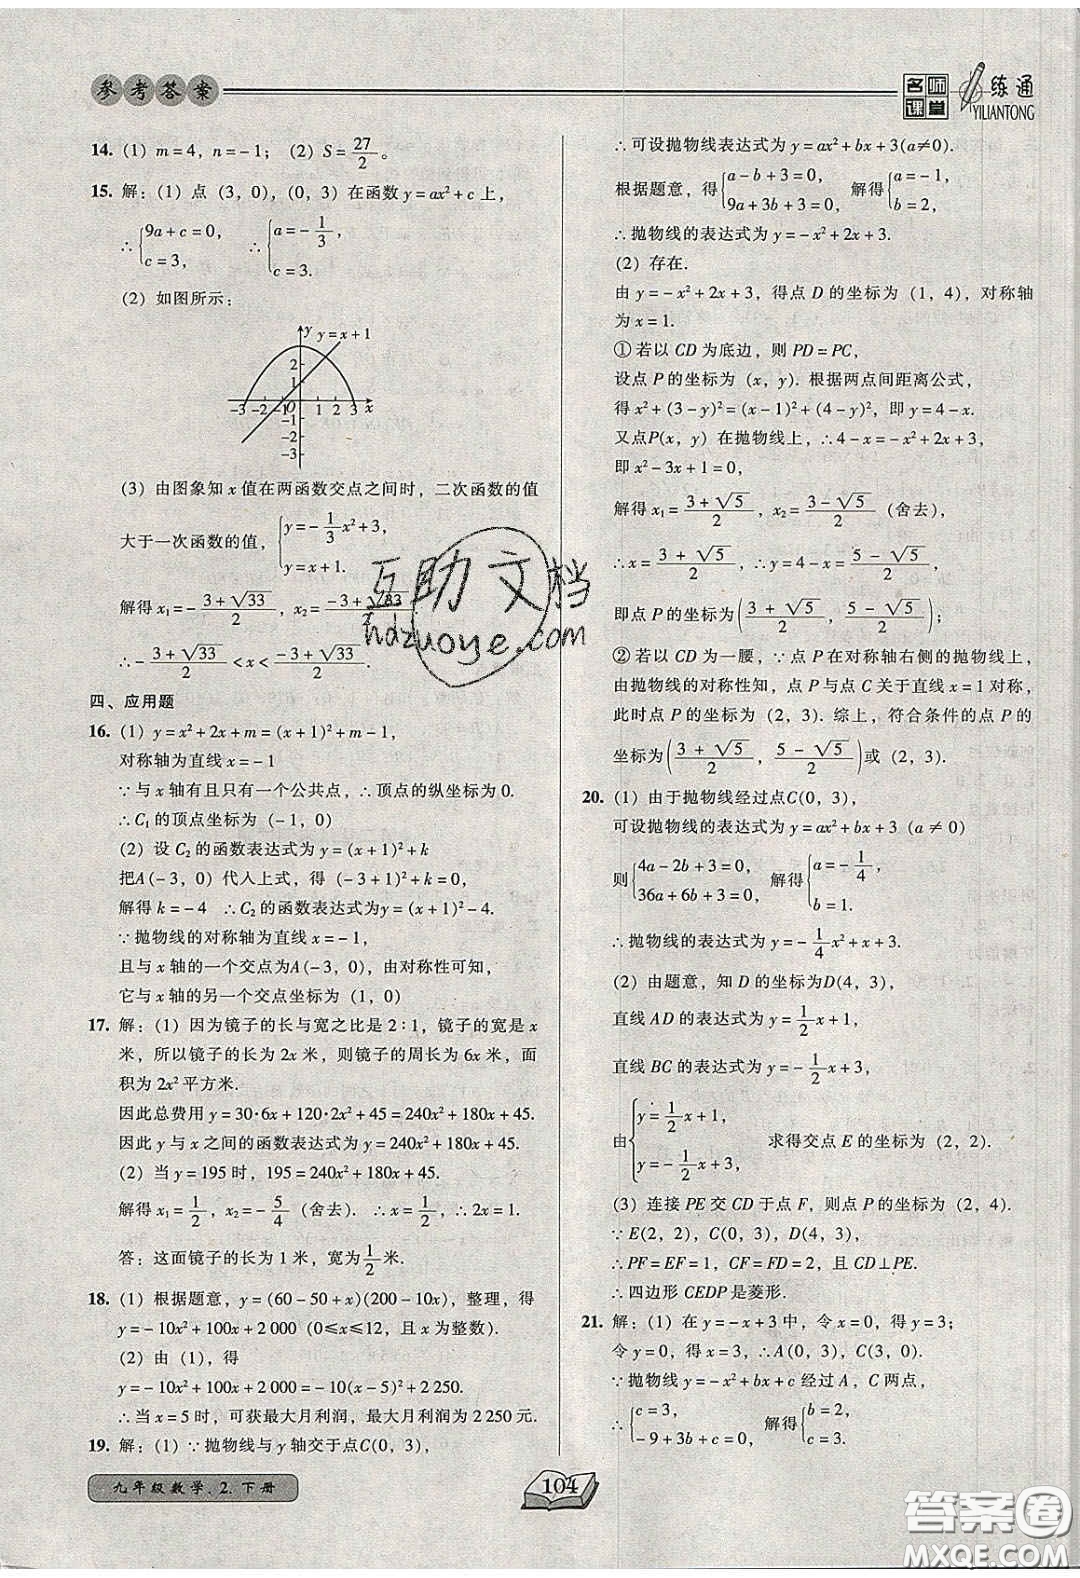 参考答案
名师课堂 一练通
YILIANTONG
14. (1) m=4, n=-1; (2) S=27/2。
15. 解:(1) 点 (3, 0), (0, 3) 在函数 y=ax²+c 上,
∴ {9a+c=0, c=3, ∴ {a=-1/3, c=3.
(2) 如图所示:
y y=x+1
2
1
-3 -2 -1 O 1 2 3 x
-1
-2
-3
(3) 由图象知 x 值在两函数交点之间时, 二次函数的值
大于一次函数的值, {y=-1/3x²+3, y=x+1.
解得 x₁=-(3+√33)/2, x₂=(-3+√33)/2.
∴-(3+√33)/2<x<(-3+√33)/2.
四、应用题
16. (1) y=x²+2x+m=(x+1)²+m-1,
对称轴为直线 x=-1
∵与 x 轴有且只有一个公共点, ∴顶点的纵坐标为 0.
∴C₁的顶点坐标为 (-1, 0)
(2) 设 C₂ 的函数表达式为 y=(x+1)²+k
把A(-3, 0) 代人上式, 得 (-3+1)²+k=0,
解得 k=-4 ∴C₂的函数表达式为y=(x+1)²-4.
∵抛物线的对称轴为直线 x=-1,
且与 x 轴的一个交点为A(-3, 0), 由对称性可知,
它与 x 轴的另一个交点坐标为 (1, 0)
17. 解:(1) 因为镜子的长与宽之比是 2∶1, 镜子的宽是 x
米, 所以镜子的长为 2x 米, 则镜子的周长为 6x 米, 面
积为 2x² 平方米.
因此总费用 y=30·6x+120·2x²+45=240x²+180x+45.
因此 y 与 x 之间的函数表达式为 y=240x²+180x+45.
(2) 当 y=195 时, 195=240x²+180x+45.
解得 x₁=1/2, x₂=-5/4 (舍去). ∴x=1/2, ∴2x=1.
答:这面镜子的长为 1 米, 宽为1/2米.
18. (1) 根据题意, y=(60-50+x)(200-10x), 整理, 得
y=-10x²+100x+2 000 (0≤x≤12, 且 x 为整数).
(2) 由 (1), 得
y=-10x²+100x+2 000=-10(x-5)²+2 250.
∴当 x=5 时, 可获最大月利润, 最大月利润为 2 250 元.
19. 解:(1) ∵抛物线与 y 轴交于点C(0, 3),
∴可设抛物线表达式为 y=ax²+bx+3(a≠0).
根据题意, 得{a-b+3=0, 9a+3b+3=0, 解得{a=-1, b=2,
∴抛物线的表达式为 y=-x²+2x+3.
(2) 存在.
由 y=-x²+2x+3, 得点 D 的坐标为 (1, 4), 对称轴
为 x=1.
①若以 CD 为底边, 则 PD=PC,
设点 P 的坐标为 (x, y). 根据两点间距离公式,
得 x²+(3-y)²=(x-1)²+(4-y)², 即 y=4-x.
又点P(x, y) 在抛物线上, ∴4-x=-x²+2x+3,
即 x²-3x+1=0,
解得 x₁=(3+√5)/2, x₂=(3-√5)/2 (舍去),
∴x=(3+√5)/2, ∴y=4-x=(5-√5)/2,
即点 P 的坐标为((3+√5)/2, (5-√5)/2);
②若以 CD 为一腰, ∵点 P 在对称轴右侧的抛物线上,
由抛物线的对称性知, 点 P 与点 C 关于直线 x=1 对称,
此时点 P 的坐标为 (2, 3). 综上, 符合条件的点 P 的
坐标为((3+√5)/2, (5-√5)/2)或 (2, 3).
20. (1) 由于抛物线经过点C(0, 3),
可设抛物线的表达式为 y=ax²+bx+3 (a≠0)
则{4a-2b+3=0, 36a+6b+3=0, 解得{a=-1/4, b=1.
∴抛物线的表达式为 y=-1/4x²+x+3.
(2) 由题意, 知 D 的坐标为D(4, 3),
直线 AD 的表达式为 y=1/2x+1,
直线 BC 的表达式为 y=-1/2x+3,
由{y=1/2x+1, y=-1/2x+3, 求得交点 E 的坐标为 (2, 2).
(3) 连接 PE 交 CD 于点 F, 则点 P 的坐标为 (2, 4).
∵E(2, 2), C(0, 3), D(4, 3),
∴PF=EF=1, CF=FD=2, 且 CD⊥PE.
∴四边形 CEDP 是菱形.
21. 解:(1) 在 y=-x+3 中, 令 x=0, 得 y=3;
令 y=0, 得 x=3, ∴A(0, 3), C(3, 0).
∵抛物线 y=-x²+bx+c 经过 A, C 两点,
∴{c=3, -9+3b+c=0, 解得{b=2, c=3.
九年级数学.2.下册
104
互助文档
hdzuoye.com
答案圈
MXQE.COM